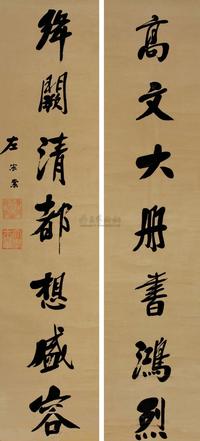 高文大册書鴻烈
絳闕清都想盛容
左宗棠